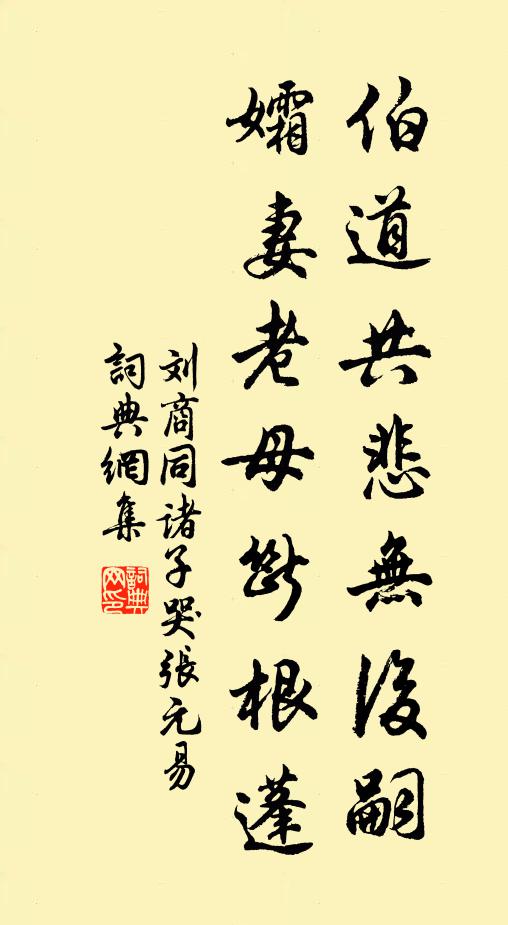 伯道共悲無後嗣
孀妻老母斷根蓬
刘商同诸子哭張元易
詞典網集
詞典網印